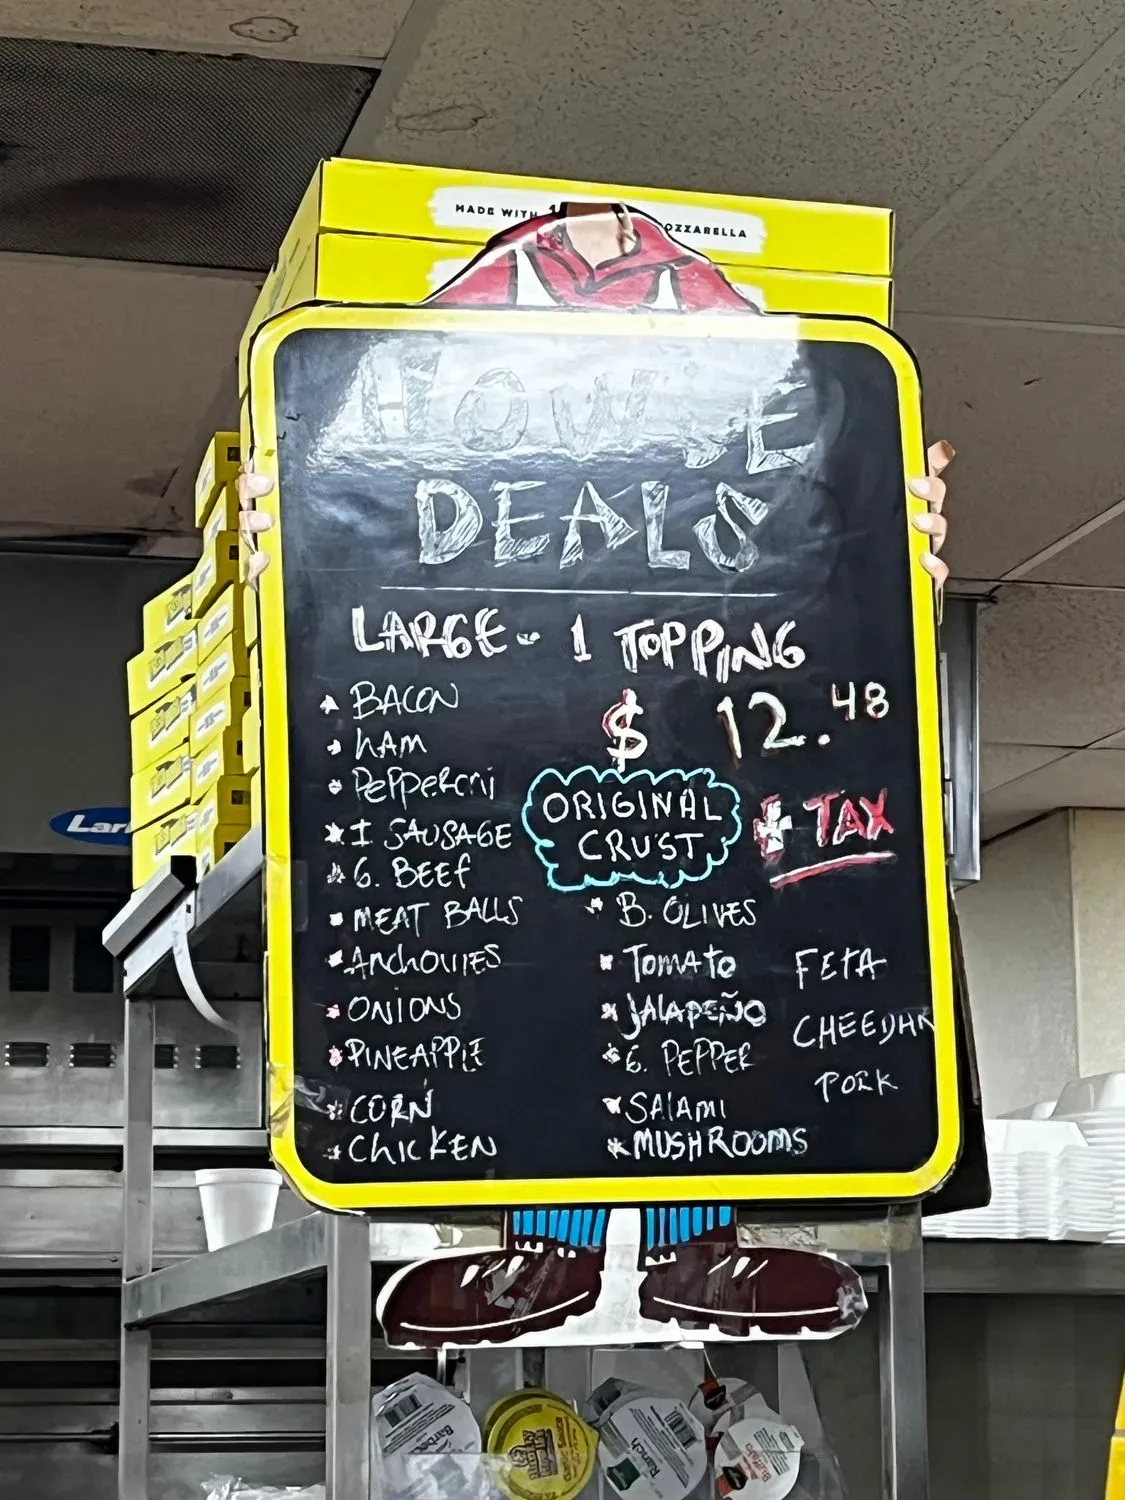 MADE WITH
OZZARELLA
HOWIE
DEALS
LARGE - 1 TOPPING
$ 12.48
+ TAX
ORIGINAL
CRUST
BACON
HAM
PEPPERONI
I SAUSAGE
G. BEEF
MEAT BALLS
ANCHOVIES
ONIONS
PINEAPPLE
CORN
CHICKEN
B. OLIVES
TOMATO
JALAPEÑO
G. PEPPER
SALAMI
MUSHROOMS
FETA
CHEEDAR
PORK
Ranch